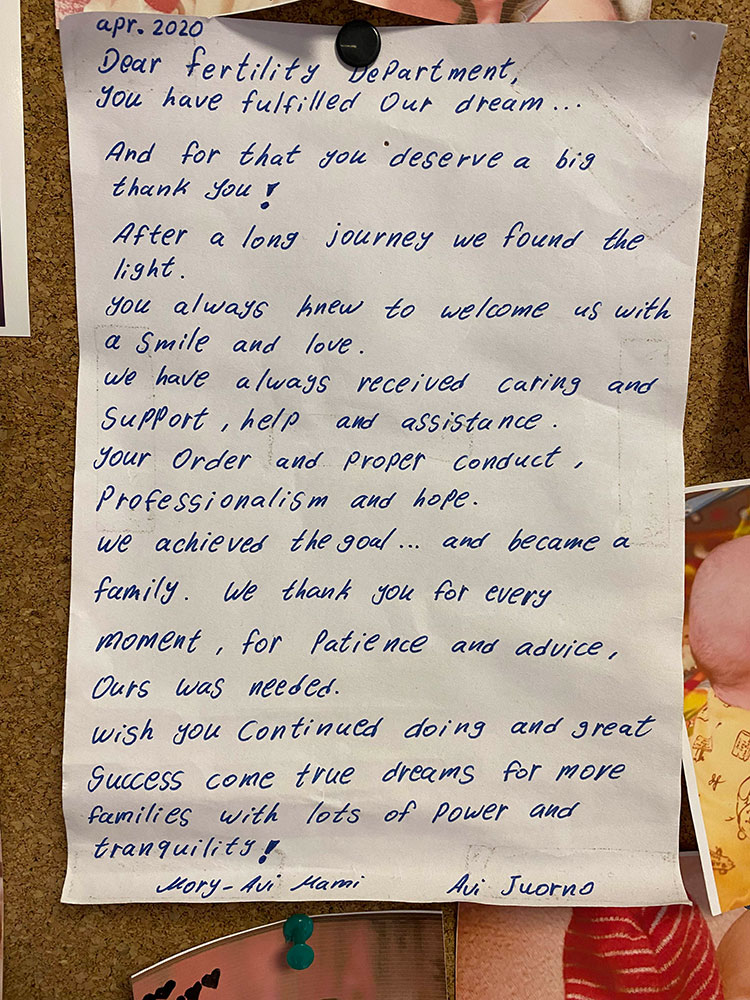 apr. 2020
Dear fertility Department,
you have fulfilled Our dream...
And for that you deserve a big
thank you!
After a long journey we found the
light.
you always knew to welcome us with
a smile and love.
we have always received caring and
support, help and assistance.
your Order and proper conduct,
Professionalism and hope.
we achieved the goal... and became a
family. We thank you for every
moment, for Patience and advice,
Ours was needed.
wish you Continued doing and great
success come true dreams for more
families with lots of power and
tranquility!
Mory-Avi Mami Avi Juorno